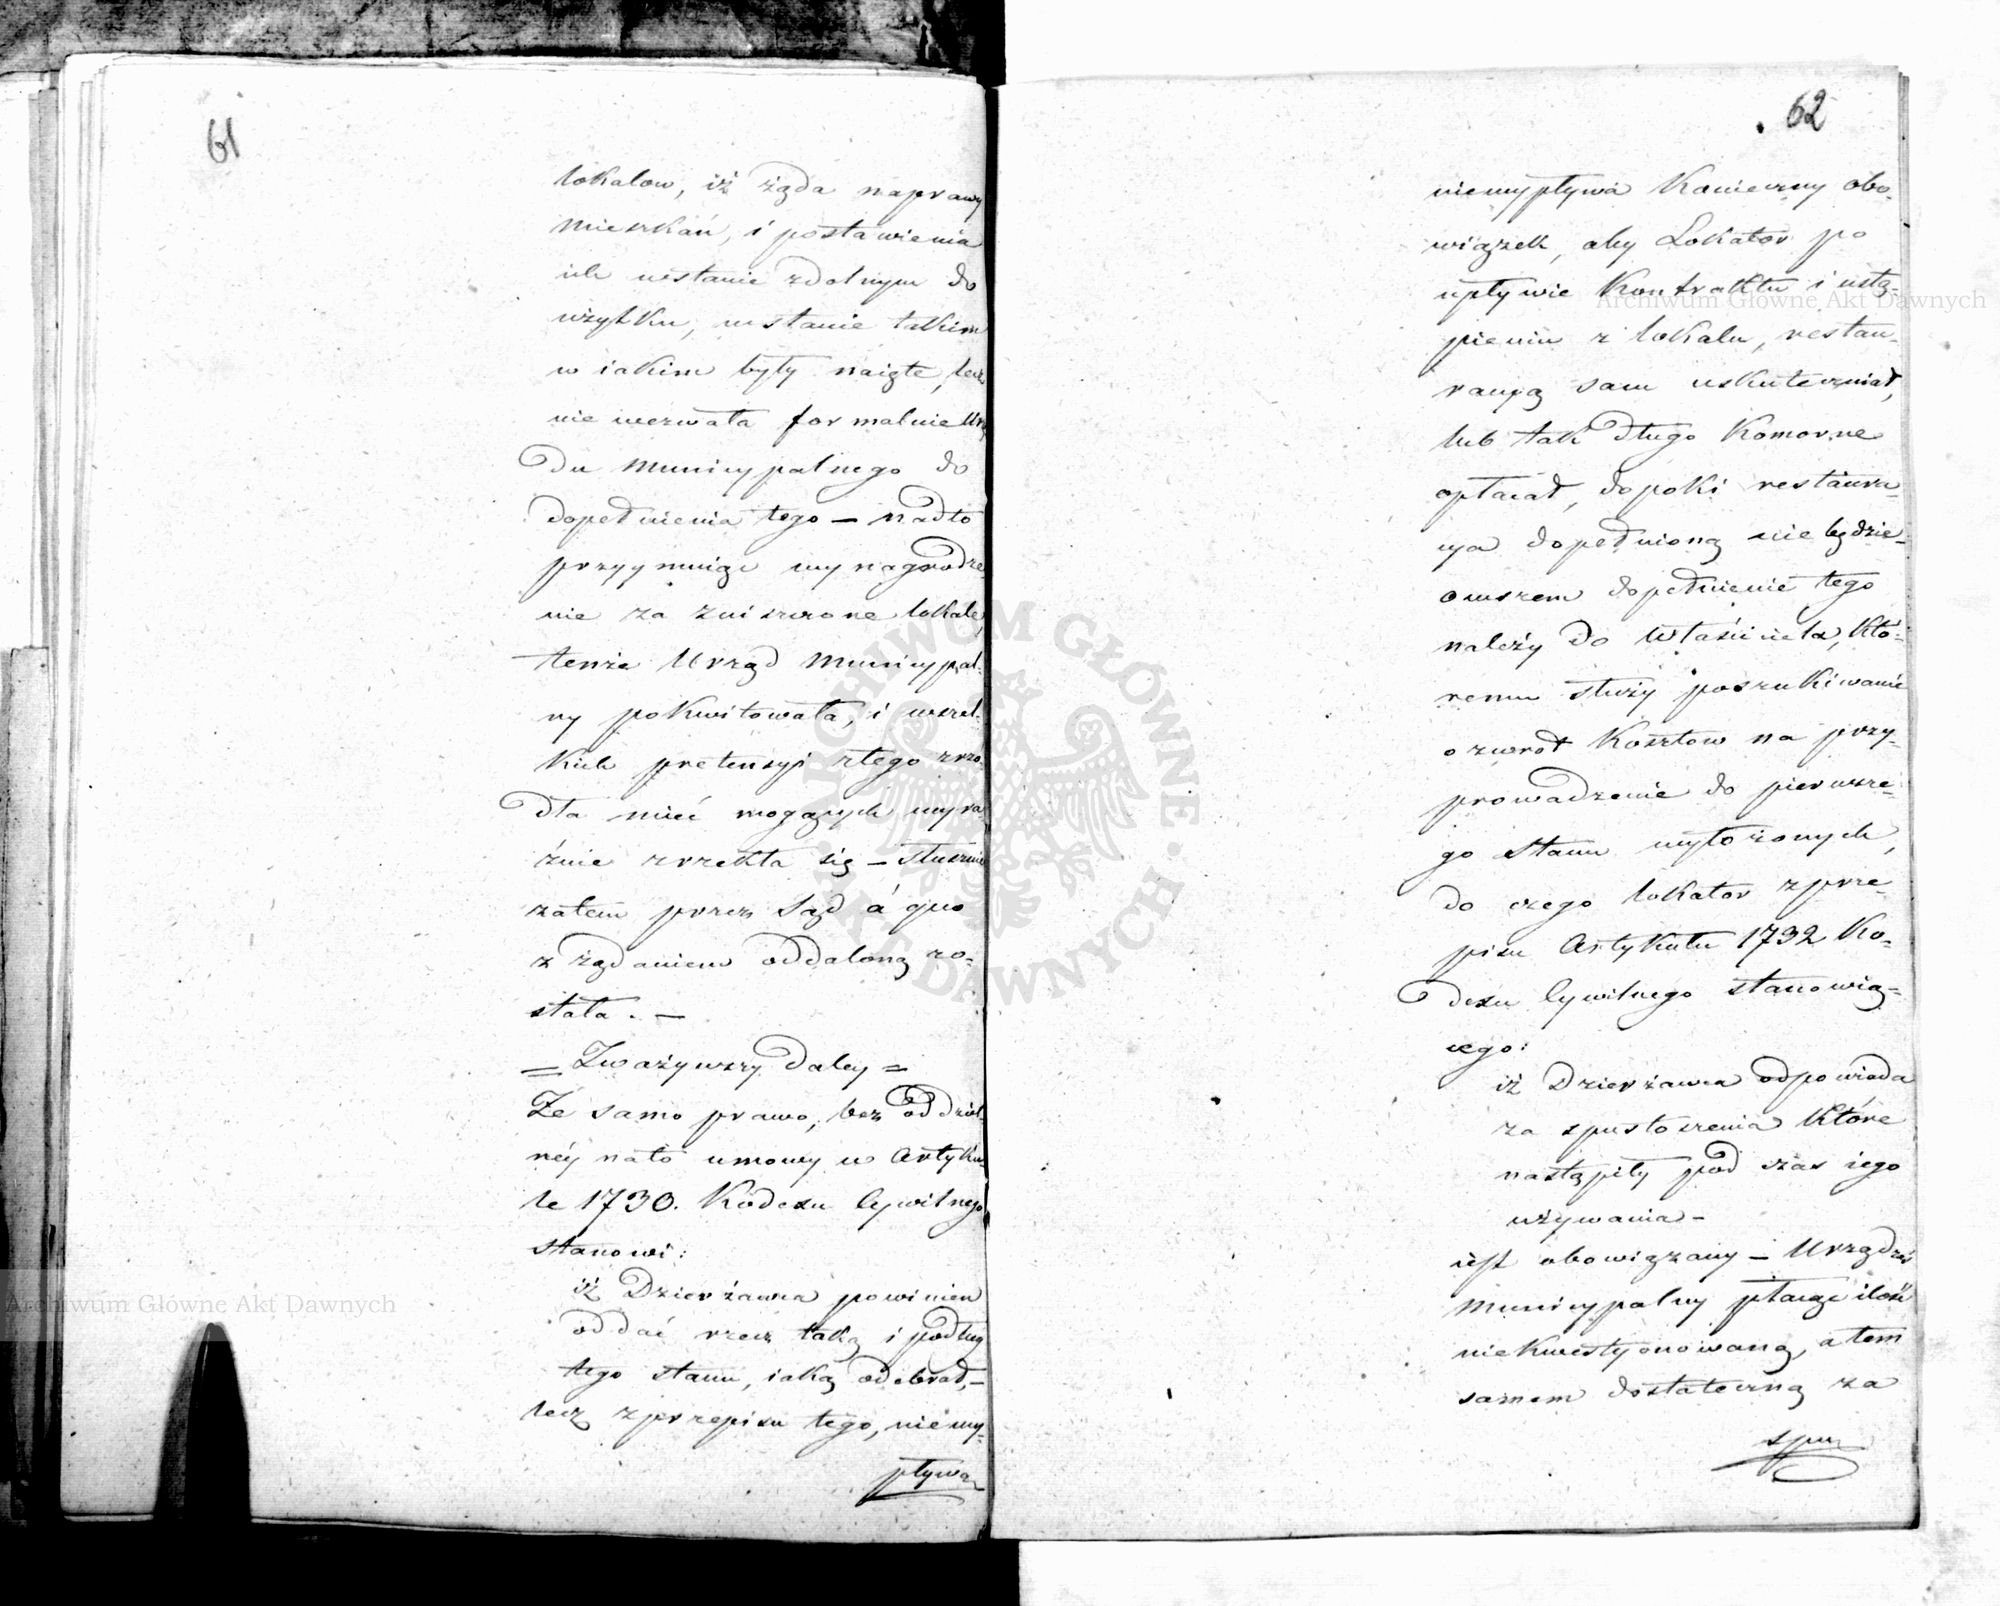 61
lokalow, iż żąda naprawy
mieszkań, i postawienia
ich wstanie zdolnym do
użytku, wstanie takim
w iakim były naięte, lecz
nie wezwała formalnie Urzę
du Municypalnego do
dopełnienia tego — nadto
przyymuiąc wynagrodze
nie za zniszczone lokale,
tenże Urząd Municypal-
ny pokwitowała, i wszel-
kich pretensyi ztego zrzó-
dła mieć mogących wyra
źnie zrzekła się — słusznie
zatem przez Sąd á quo
z żądaniem oddaloną zo-
stała. —
= Zważywszy daley =
Że samo prawo, bez oddziel-
néy nato umowy w Artyku
le 1730. Kodexu Cywilnego
stanowi:
iż Dzierżawca powinien
oddać rzecz taką i podług
tego stanu, iaką odebrał, —
lecz zprzepisu tego, niewy-
pływa
62
niewypływa konieczny obo-
wiązek, aby Lokator po
upływie Kontraktu i ustą-
pieniu z lokalu, restau-
racyą sam uskuteczniał,
lub tak długo Komorne
opłacał, dopoki restaura-
cya dopełnioną nie będzie —
owszem dopełnienie tego
należy do Właściciela, któ-
remu służy poszukiwanie
o zwrot Kosztow na przy-
prowadzenie do pierwsze-
go stanu wyłożonych,
do czego lokator zprze-
pisu Artykułu 1732 Ko-
dexu Cywilnego stanowią-
cego:
iż Dzierżawca odpowiada
za spustoszenia które
nastąpiły pod czas iego
używania —
iest obowiązany — Urząd zaś
Municypalny płacąc ilość
niekwestyonowaną, a tem
samem dostateczną za
spu
Archiwum Główne Akt Dawnych
Archiwum Główne Akt Dawnych
ARCHIWUM GŁÓWNE · AKT DAWNYCH ·